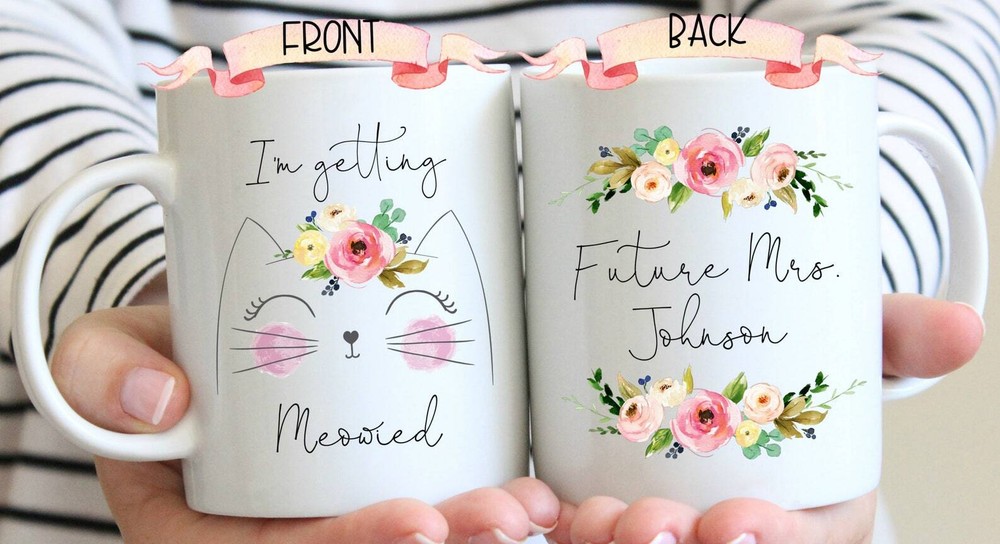 FRONT
I'm getting
Meowied
BACK
Future Mrs.
Johnson